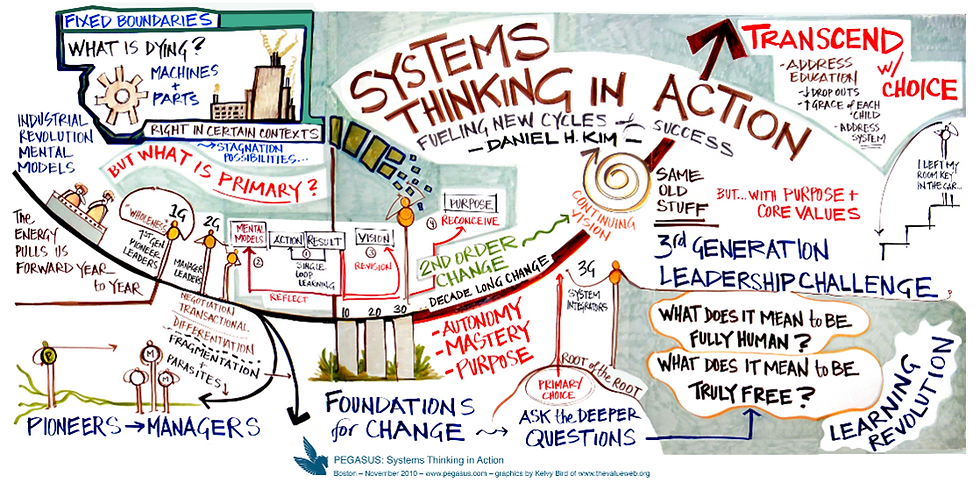 FIXED BOUNDARIES
WHAT IS DYING?
MACHINES
+
PARTS
RIGHT IN CERTAIN CONTEXTS
→ STAGNATION
POSSIBILITIES...
INDUSTRIAL
REVOLUTION
MENTAL
MODELS
BUT WHAT IS PRIMARY?
The
ENERGY
PULLS US
FORWARD YEAR
to YEAR
"WHOLENESS"
1G
1ST GEN
PIONEER
LEADERS
2G
MANAGER
LEADERS
MENTAL
MODELS
ACTION
RESULT
VISION
PURPOSE
①
SINGLE
LOOP
LEARNING
②
REFLECT
③
REVISION
④
RECONCEIVE
2ND ORDER
CHANGE
DECADE LONG CHANGE
10 20 30
NEGOTIATION
TRANSACTIONAL
DIFFERENTIATION
FRAGMENTATION
+
PARASITES
P
M
M
M
PIONEERS → MANAGERS
SYSTEMS
THINKING IN ACTION
FUELING NEW CYCLES of SUCCESS
— DANIEL H. KIM —
CONTINUING
VISION
SAME
OLD
STUFF
TRANSCEND
w/
CHOICE
- ADDRESS
EDUCATION
↓ DROP OUTS
↑ GRACE of EACH
CHILD
- ADDRESS
SYSTEM
I LEFT MY
ROOM KEY
IN THE CAR...
BUT... WITH PURPOSE +
CORE VALUES
3rd GENERATION
LEADERSHIP CHALLENGE
?
3G
SYSTEM
INTEGRATORS
- AUTONOMY
- MASTERY
- PURPOSE
ROOT of the ROOT
PRIMARY
CHOICE
FOUNDATIONS
for CHANGE
ASK the DEEPER
QUESTIONS
WHAT DOES IT MEAN to BE
FULLY HUMAN?
WHAT DOES IT MEAN to BE
TRULY FREE?
LEARNING
REVOLUTION
PEGASUS: Systems Thinking in Action
Boston – November 2010 – www.pegasus.com – graphics by Kelvy Bird of www.thevalueweb.org